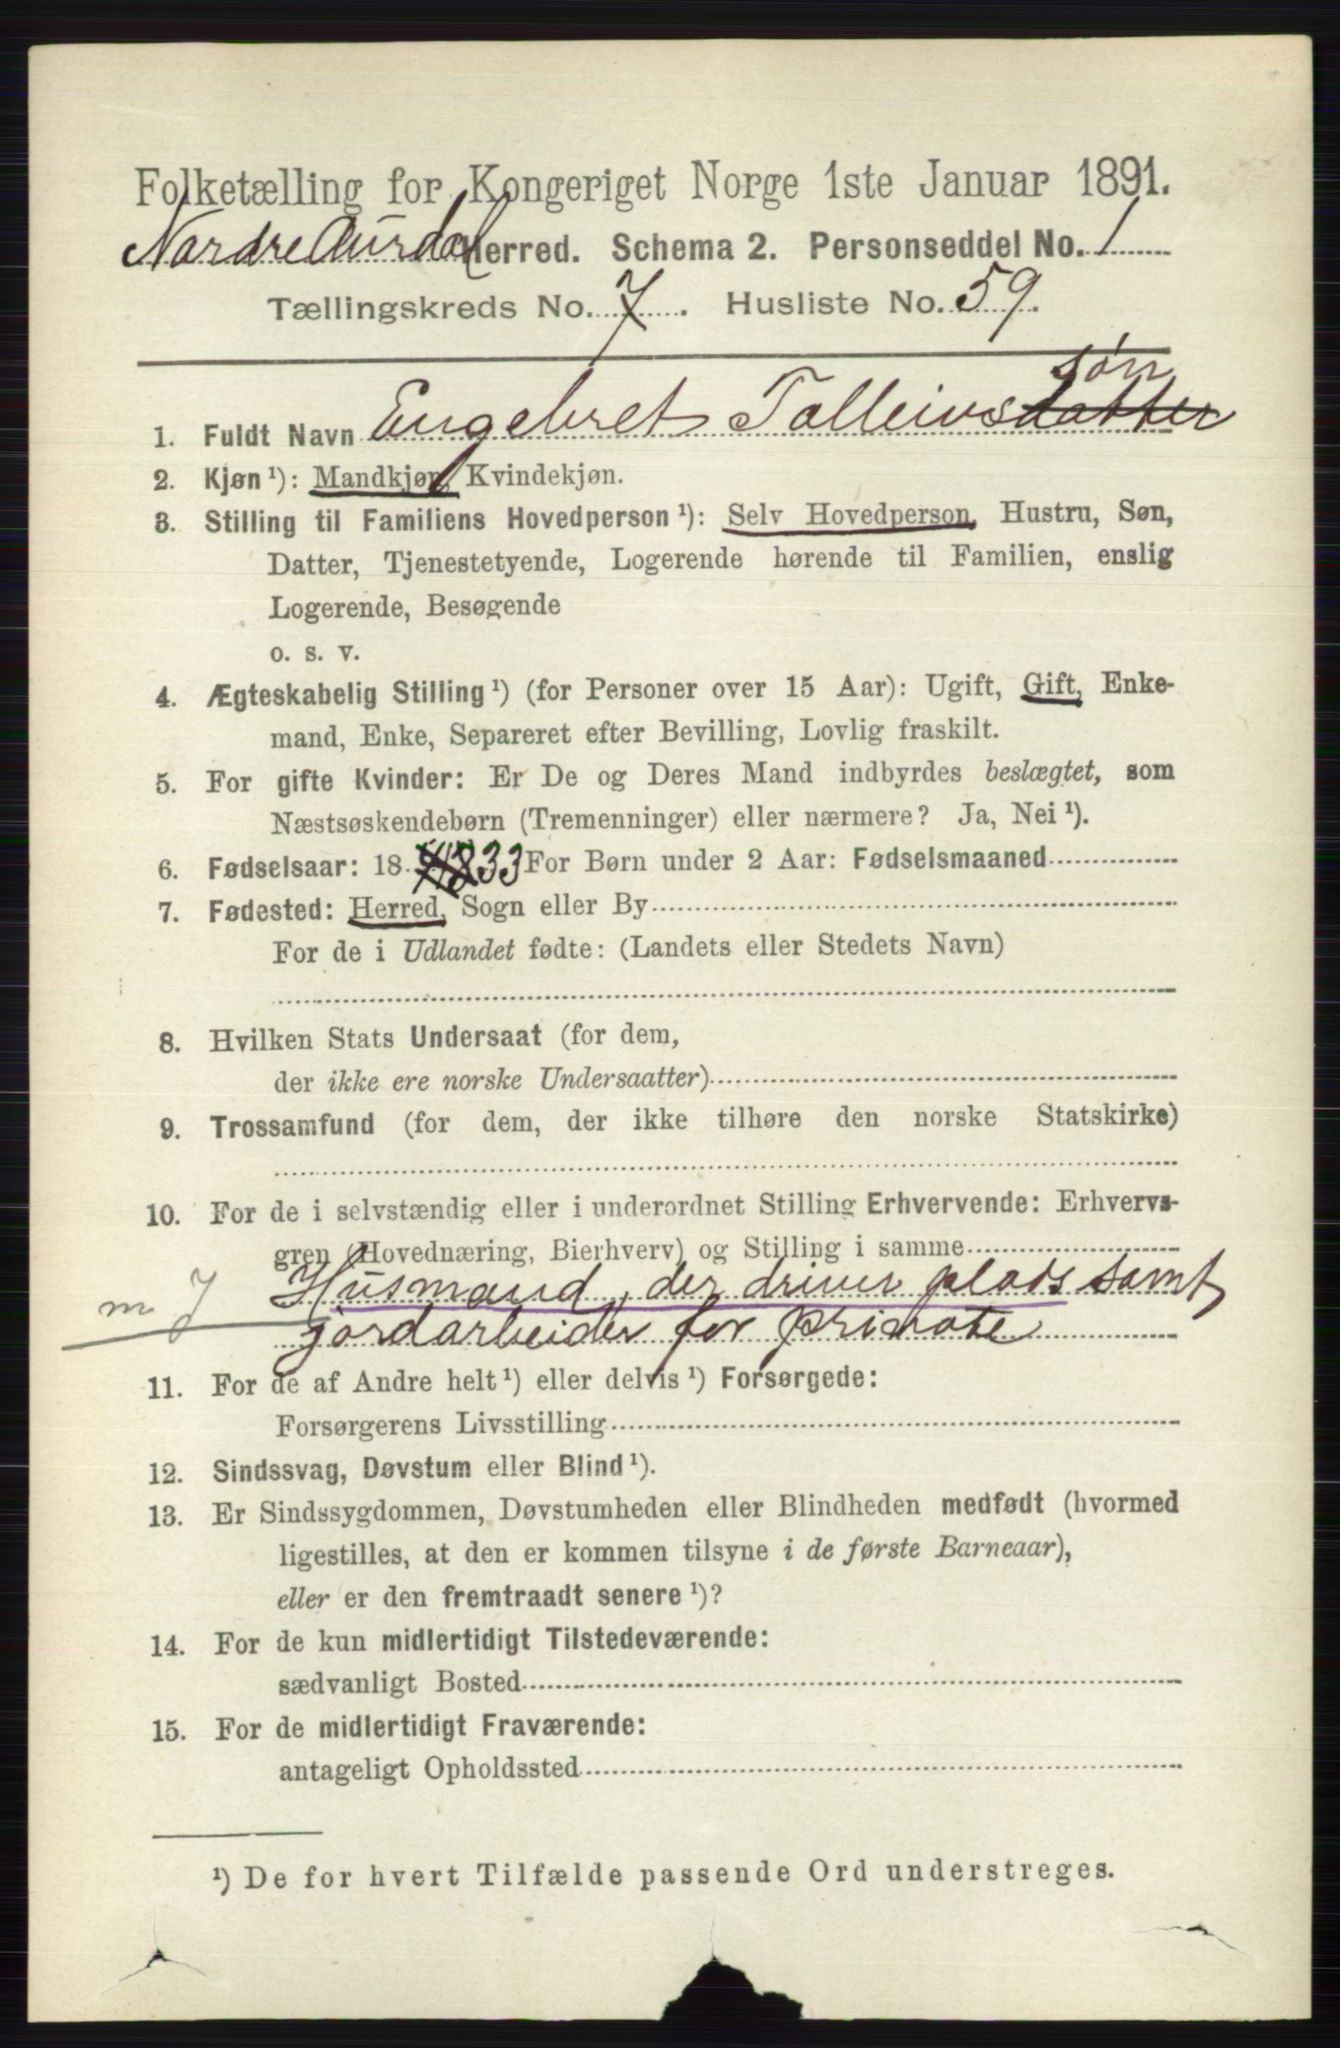 Folketælling for Kongeriget Norge 1ste Januar 1891.
Nordre Aurdal Herred. Schema 2. Personseddel No. 1
Tællingskreds No. 7. Husliste No. 59.
søn
1. Fuldt Navn Engebret Tolleivsdatter
2. Kjøn¹): Mandkjøn, Kvindekjøn.
3. Stilling til Familiens Hovedperson¹): Selv Hovedperson, Hustru, Søn,
Datter, Tjenestetyende, Logerende hørende til Familien, enslig
Logerende, Besøgende
o. s. v.
4. Ægteskabelig Stilling¹) (for Personer over 15 Aar): Ugift, Gift, Enke-
mand, Enke, Separeret efter Bevilling, Lovlig fraskilt.
5. For gifte Kvinder: Er De og Deres Mand indbyrdes beslægtet, som
Næstsøskendebørn (Tremenninger) eller nærmere? Ja, Nei¹).
6. Fødselsaar: 18 33 For Børn under 2 Aar: Fødselsmaaned
7. Fødested: Herred, Sogn eller By
For de i Udlandet fødte: (Landets eller Stedets Navn)
8. Hvilken Stats Undersaat (for dem,
der ikke ere norske Undersaatter)
9. Trossamfund (for dem, der ikke tilhøre den norske Statskirke)
10. For de i selvstændig eller i underordnet Stilling Erhvervende: Erhvervs-
gren (Hovednæring, Bierhverv) og Stilling i samme
m J Husmand, der driver plads samt
jordarbeider for private
11. For de af Andre helt¹) eller delvis¹) Forsørgede:
Forsørgerens Livsstilling
12. Sindssvag, Døvstum eller Blind¹).
13. Er Sindssygdommen, Døvstumheden eller Blindheden medfødt (hvormed
ligestilles, at den er kommen tilsyne i de første Barneaar),
eller er den fremtraadt senere¹)?
14. For de kun midlertidigt Tilstedeværende:
sædvanligt Bosted
15. For de midlertidigt Fraværende:
antageligt Opholdssted
¹) De for hvert Tilfælde passende Ord understreges.